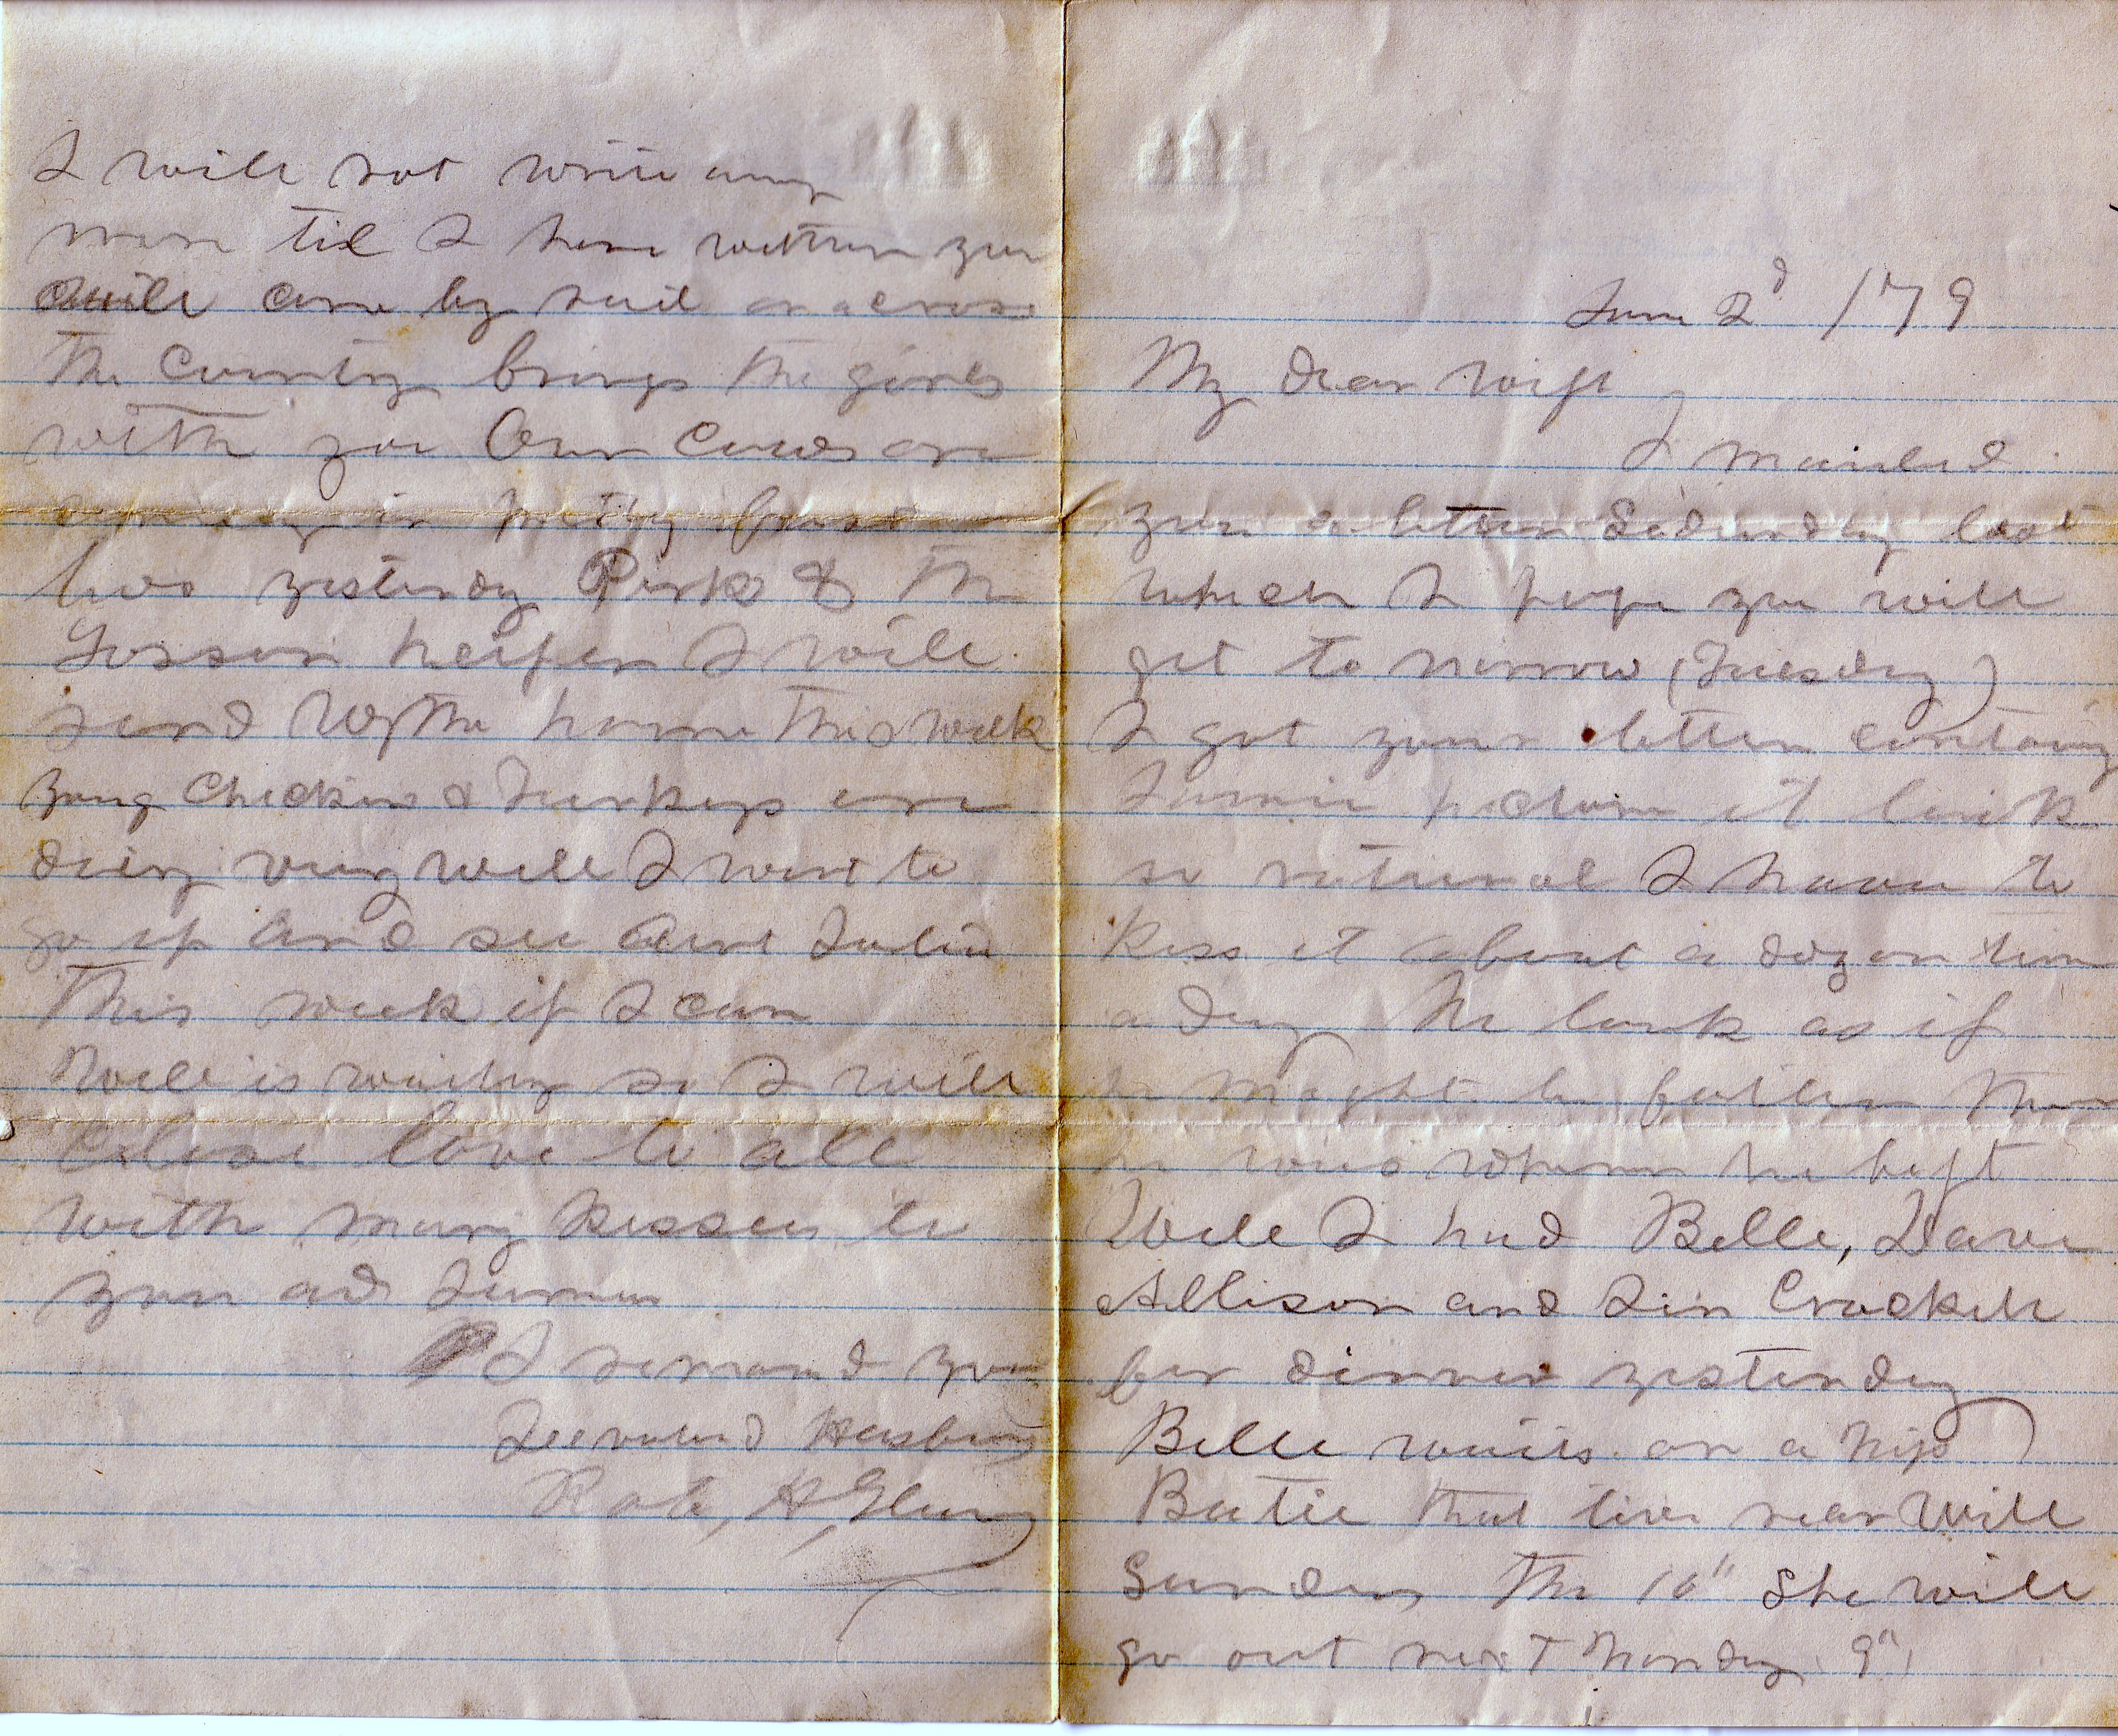 June 2d /79
My dear wife
I mailed
you a letter Sadurday last
which I hope you will
get to morrow (Tuesday)
I got your letter containg
picture it look
so natural I have to
kiss it about a dozen time
a day he look as if
he might be fatter than
he was when he left
Well I had Belle, Dave
Allison and Jim Crockett
for dinner yesterday
Belle waits on a Miss
that live near Will
the 10" She will
go out next Monday 9"
I will not write any
more til I here wether you
will come by rail or across
the Country brings the girls
with you Our Cows are
in pretty fast
two yesterday & the
heifer I will
send home this week
yong Chickens & Turkeys are
doing very well I want to
go up and see Aunt Julia
this week if I can
Will is waiting so I will
Close love to all
with many kisses to
you ad
I remand your
Husband
Robt, H, Glenn